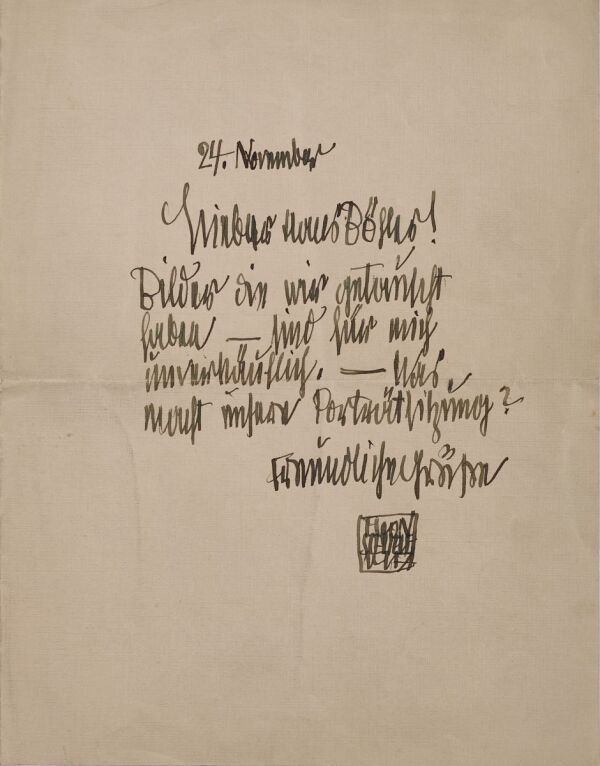 24. November
Lieber Hans Böhler!
Bilder die wir getauscht
haben — sind für mich
unverkäuflich. — Was
macht unsere Porträtsitzung?
Freundliche Grüße